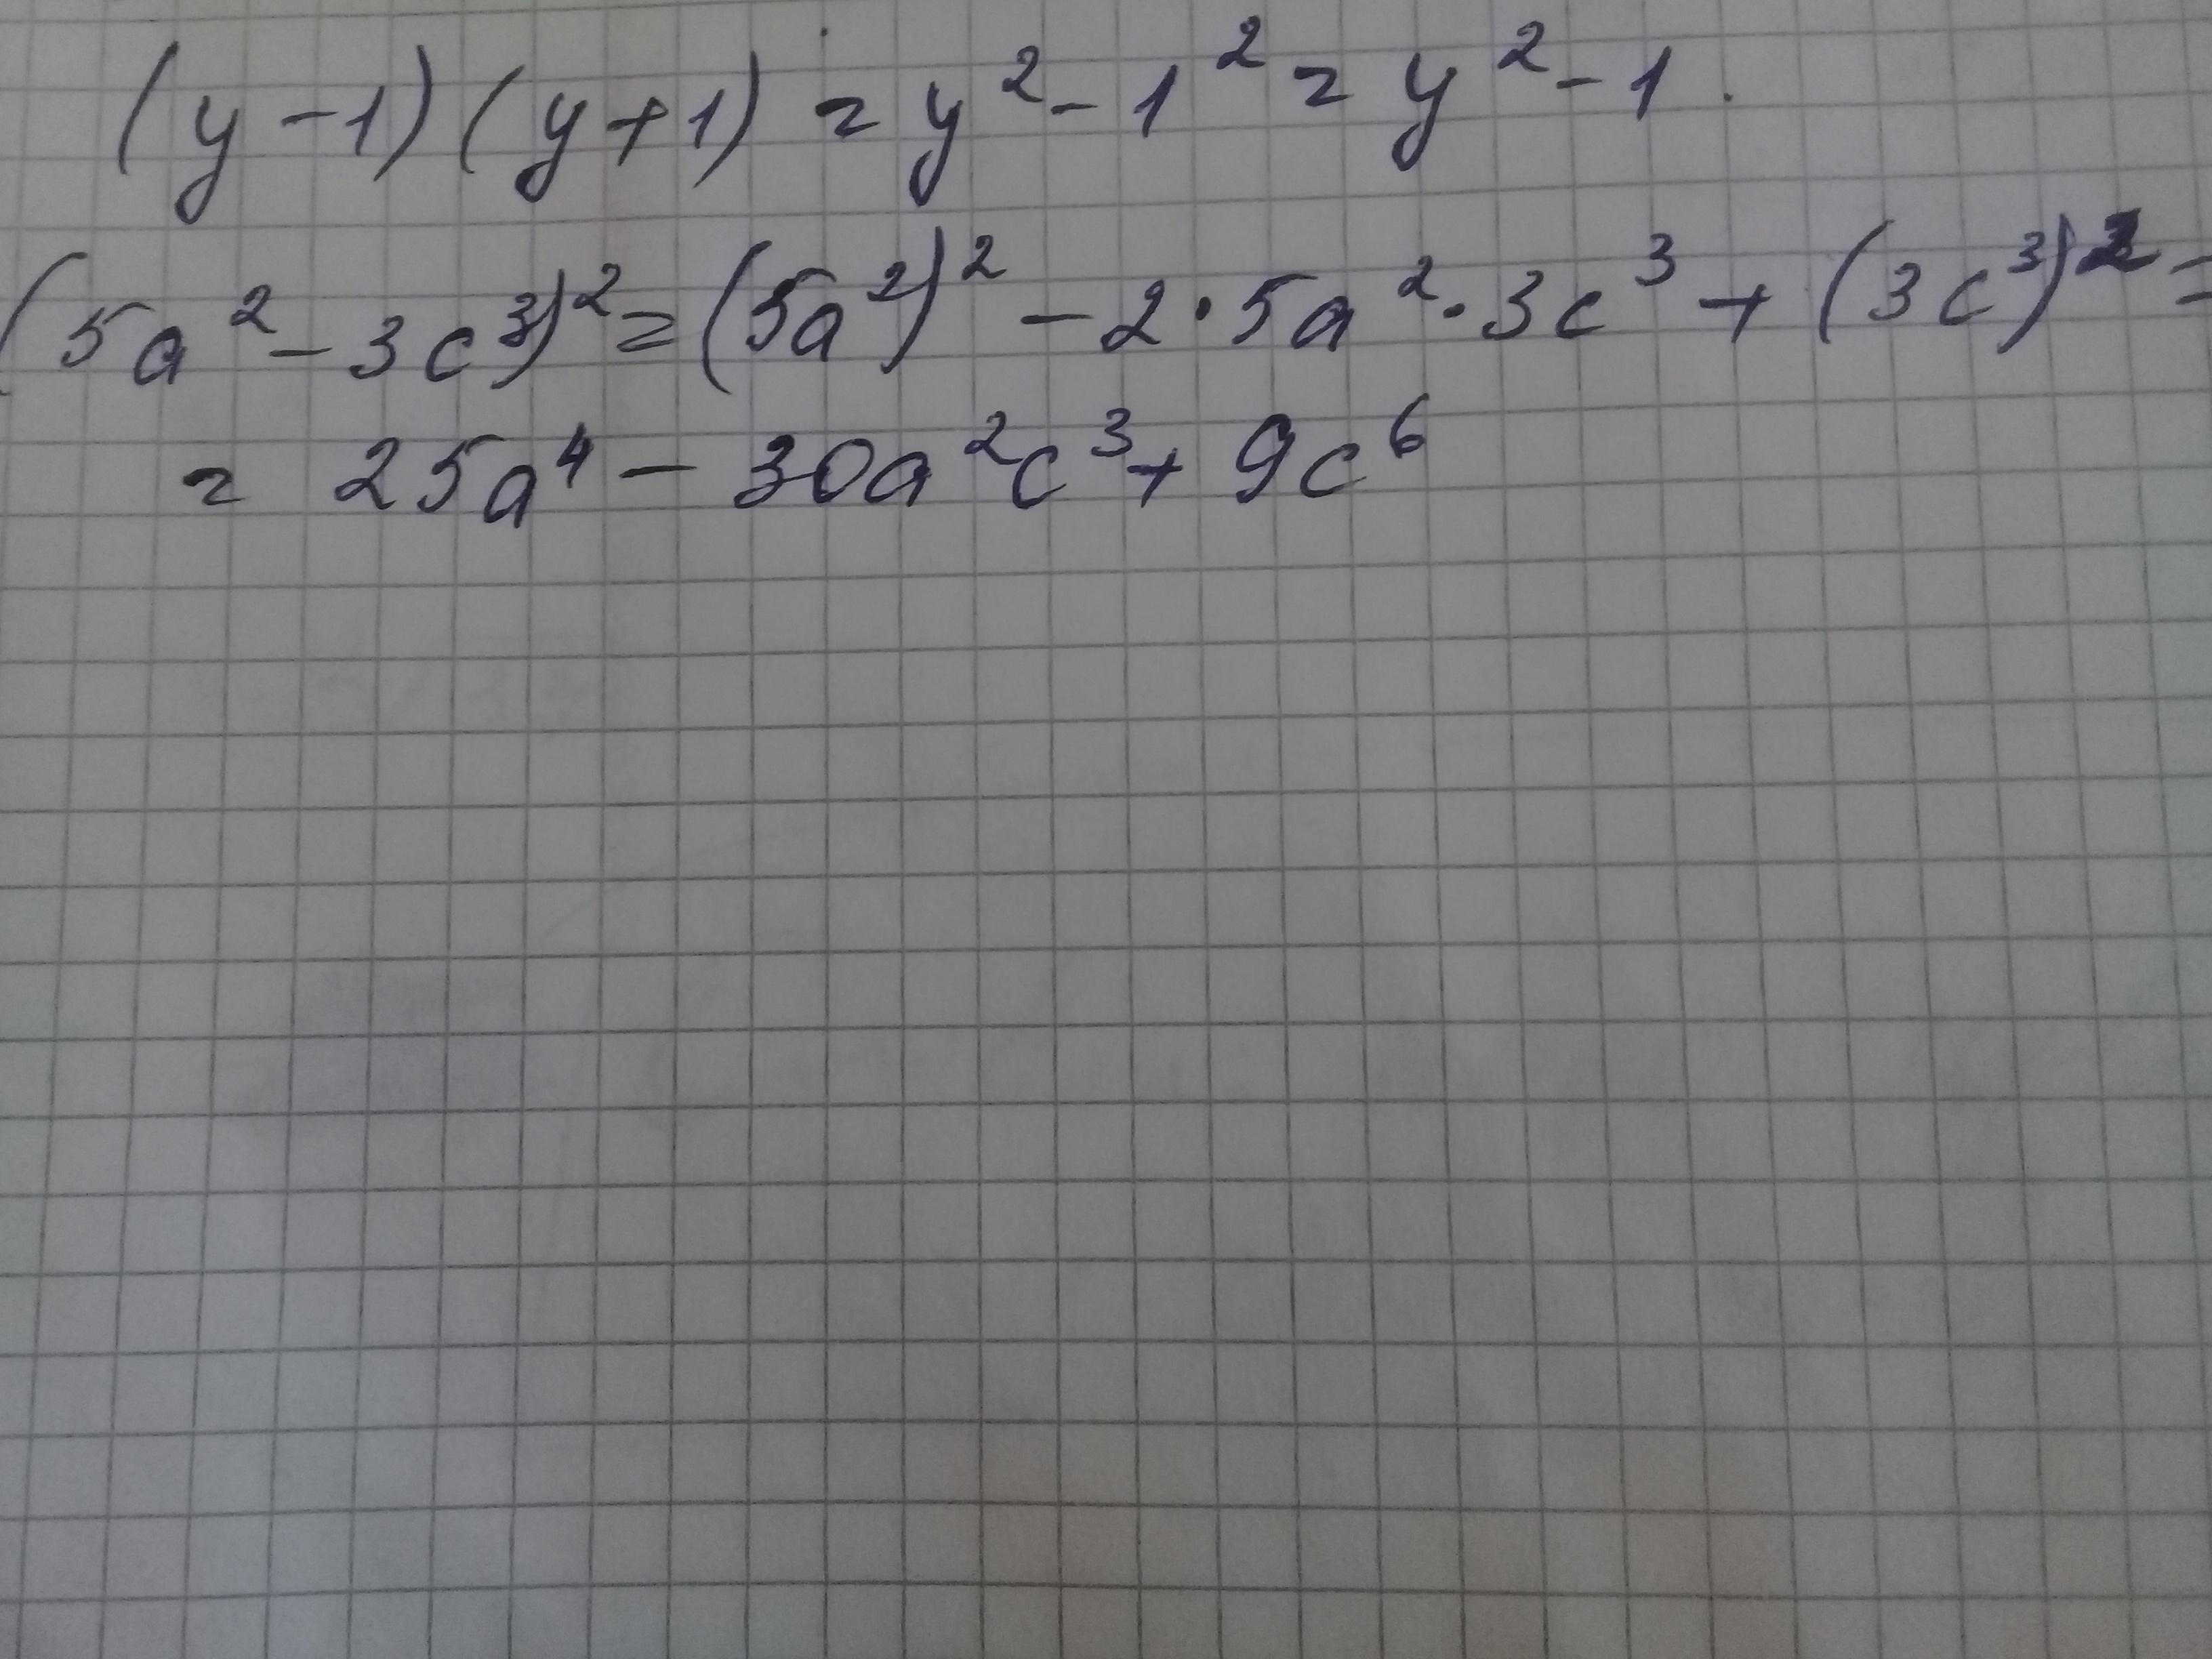 (y-1)(y+1) = y² - 1² = y² - 1.
(5a² - 3c³)² = (5a²)² - 2·5a²·3c³ + (3c³)² =
= 25a⁴ - 30a²c³ + 9c⁶